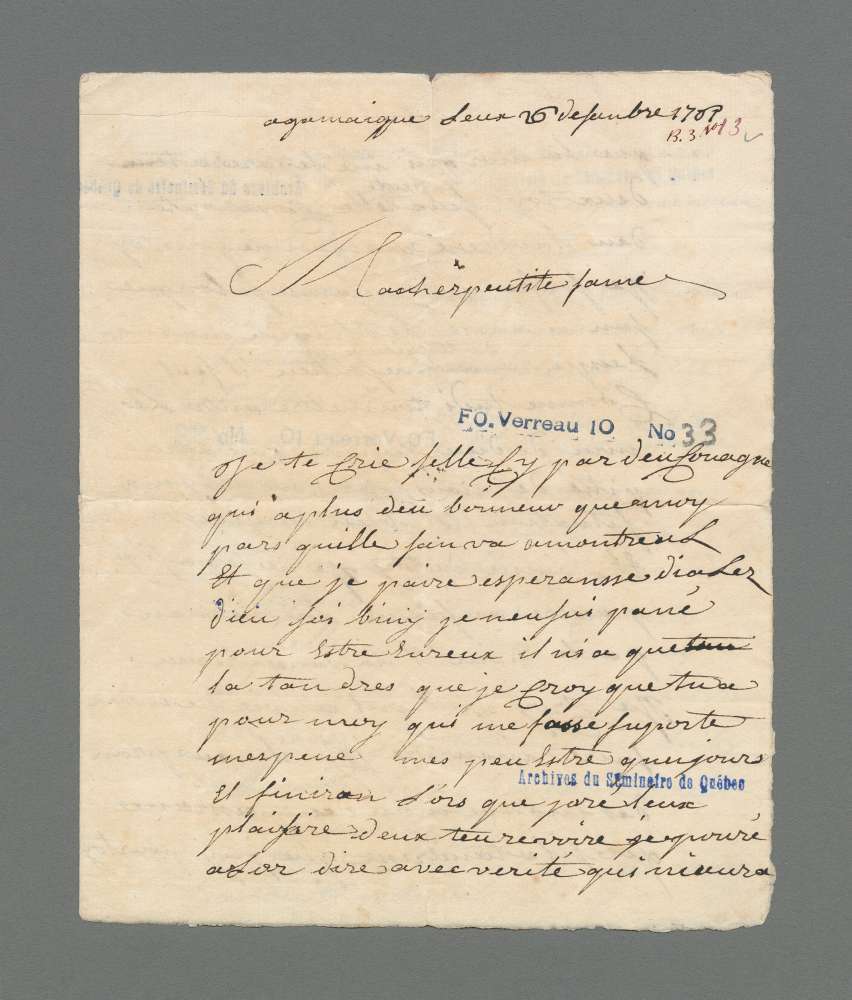 agamaigue Leux 26 desanbre 170
B. 3 No 13
Ma cher peutite fame
FO. Verreau 10 No 33
Je te Crie selle Cy par deu Couagne
qui a plus deu bonneur que moy
pars quille san va a montreal
Et que je paire esperansse dialer
dieu soi biny je neu sui pa né
pour Estre Eureux il ni a que
la tandres que je Croy que tu a
pour moy qui me fasse suporte
mes pene mes peu Estre queu jours
Et finiran Lors que jore Leux
plaisire deux teu revoire je pouré
alor dire avec verité qui ni aura
Archives du Séminaire de Québec